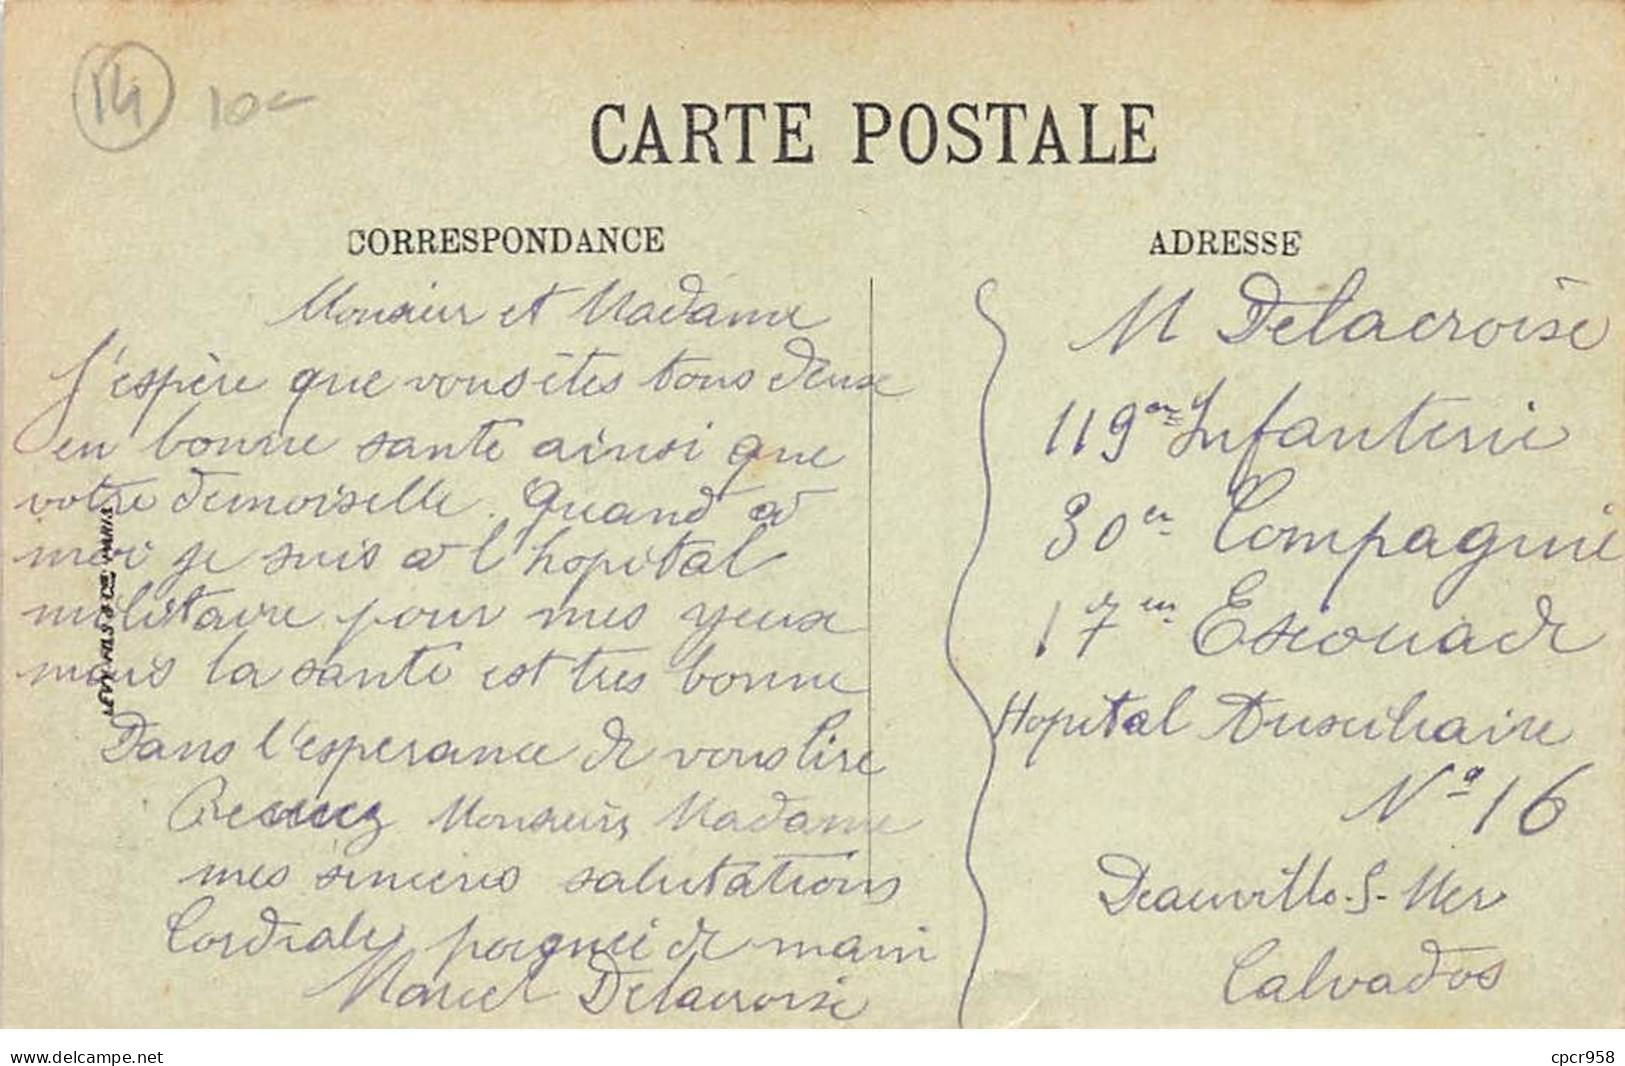 14 10-
CARTE POSTALE
CORRESPONDANCE
Monsieur et Madame
J'espère que vous êtes tous deux
en bonne sante ainsi que
votre demoiselle. Quand à
moi je suis à l'hopital
militaire pour mes yeux
mais la santé est tres bonne
Dans l'esperance de vous lire
Recevez Monsieur, Madame
mes sinceres salutations
Cordiale poignée de main
Marcel Delacroix
LEVY FILS & CIE PARIS
ADRESSE
M Delacroix
119em Infanterie
30em Compagnie
17em Escouade
Hopital Auxiliaire
No 16
Deauville-S-Mer
Calvados
delcampe.net
cpcr958